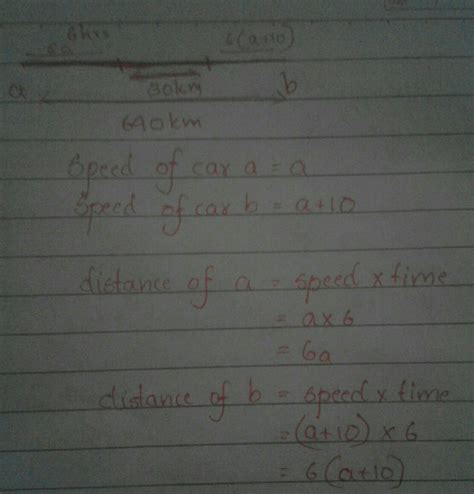 6hrs
6a
6(a+10)
30km
a
b
640km
Speed of car a = a
Speed of car b = a+10
distance of a = speed x time
= a x 6
= 6a
distance of b = speed x time
= (a+10) x 6
= 6(a+10)